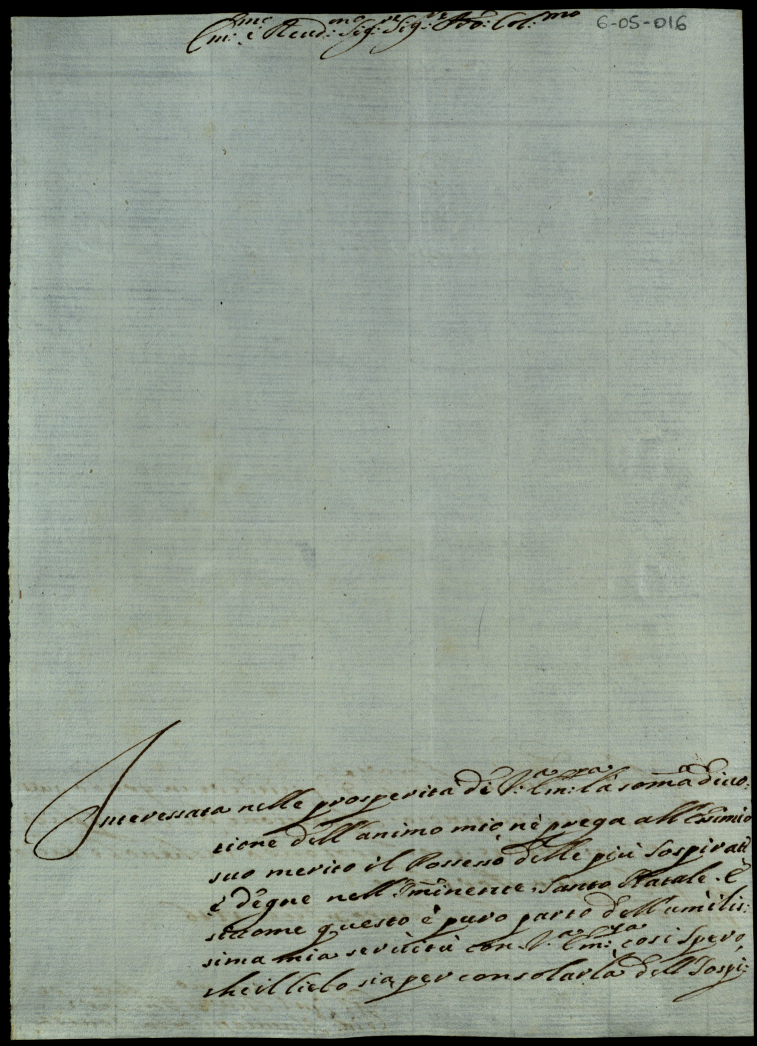 6-05-016
Em:mo e Reud:mo Sig:re Sig:re Pro: Col:mo
Interessata nelle prosperità dè V:a Em:za la somma diuo:
tione dell'animo mio nè prega all'Esimio
suo merito il Possesso delle più Sospirate
è degne nell'Iminente Santo Natale. E
siccome questo è puro parto dell'umilis:
sima mia seruitù con V:a Em:za così Spero
che il Cielo sia per consolarla dell Sospi: